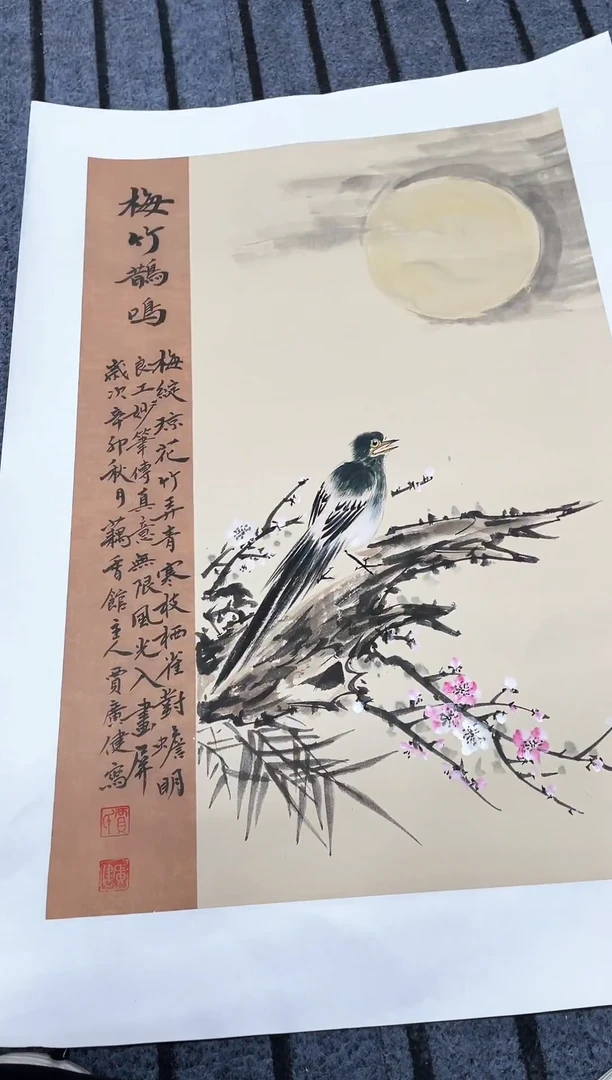 梅竹鵲鳴
梅綻琼花竹弄青寒枝栖雀對蟾明
良工妙筆傳真意無限風光入畫屏
歲次辛卯秋月藕香館主人賈廣健寫
賈氏
廣健